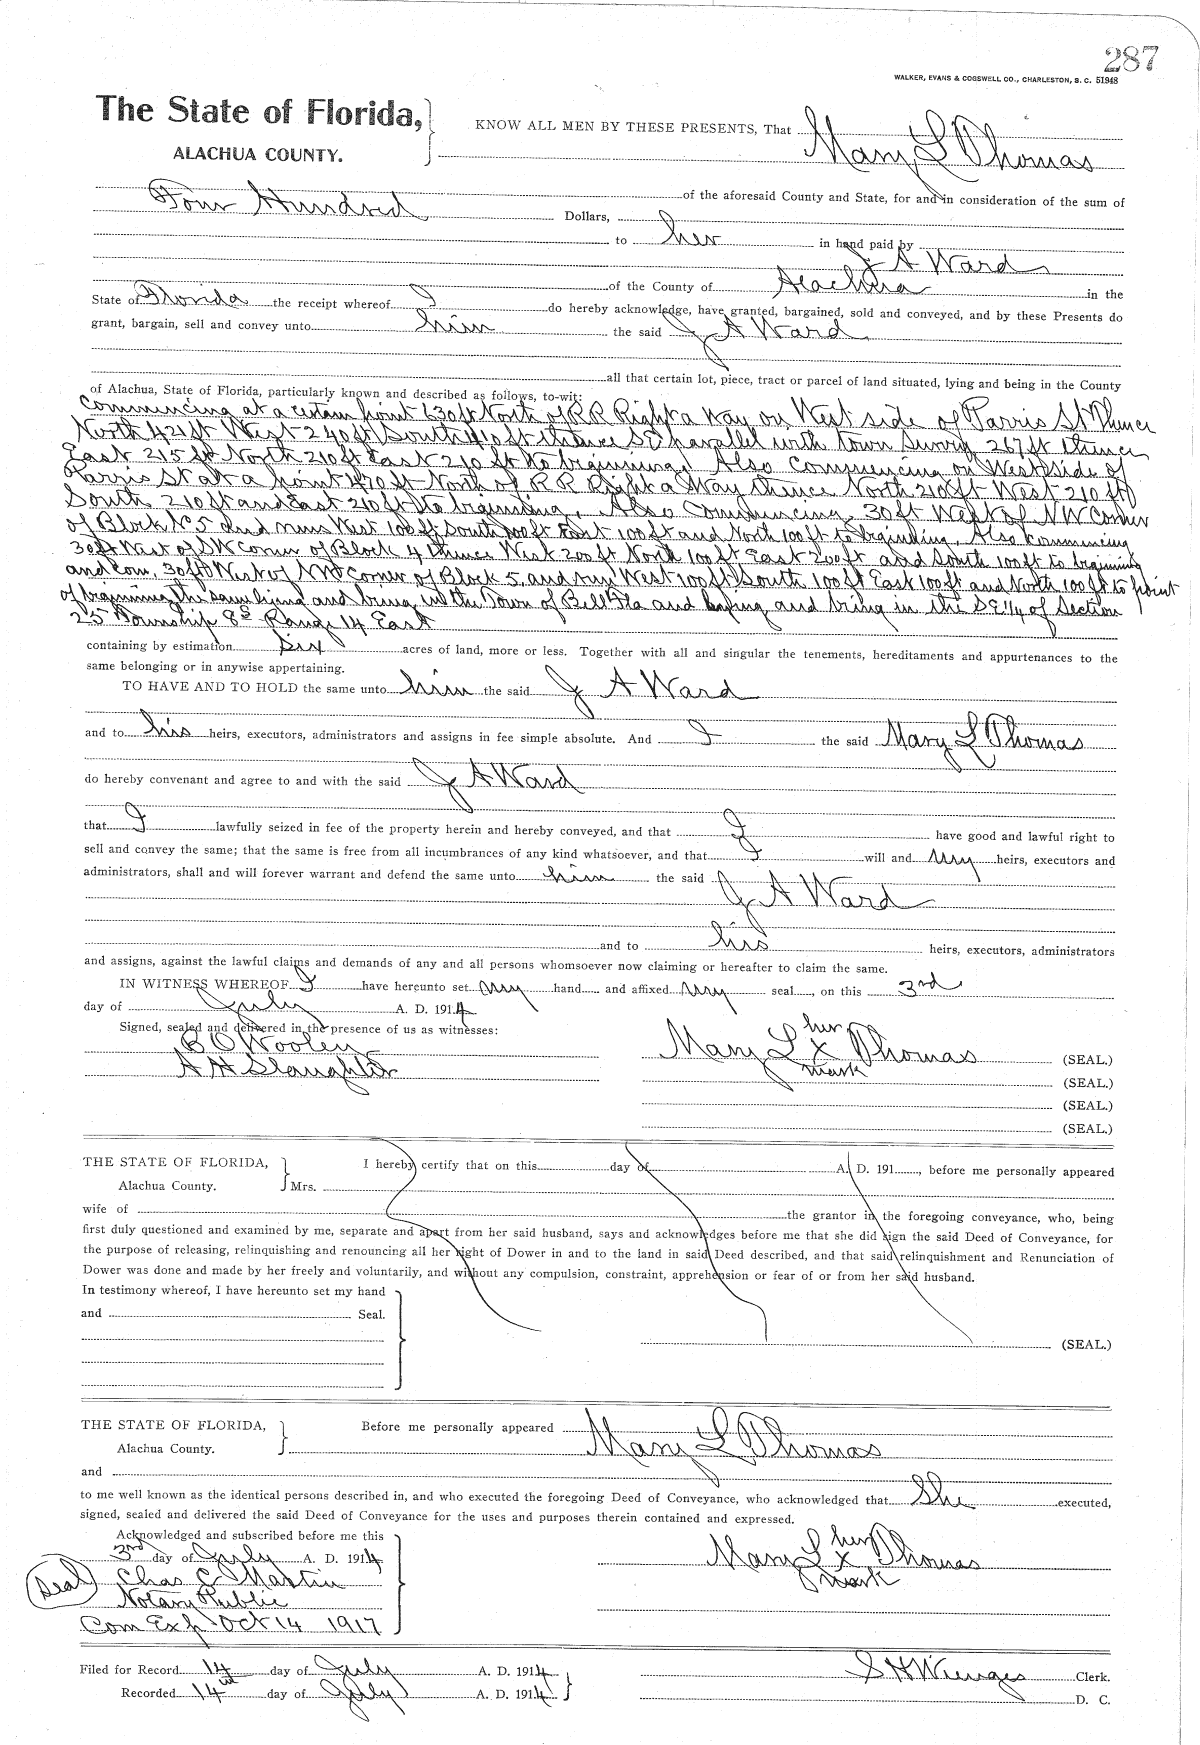 287
WALKER, EVANS & COGSWELL CO., CHARLESTON, S. C. 51948
The State of Florida,
ALACHUA COUNTY.
KNOW ALL MEN BY THESE PRESENTS, That Mary L Thomas
of the aforesaid County and State, for and in consideration of the sum of
Four Hundred Dollars,
to her in hand paid by
J A Ward
of the County of Alachua in the
State of Florida the receipt whereof I do hereby acknowledge, have granted, bargained, sold and conveyed, and by these Presents do
grant, bargain, sell and convey unto him the said J A Ward
all that certain lot, piece, tract or parcel of land situated, lying and being in the County
of Alachua, State of Florida, particularly known and described as follows, to-wit:
Commencing at a certain point 630 ft North of R R Right a way on West side of Parris St thence
North 421 ft West 240 ft South 410 ft thence SE parallel with town Survey 267 ft thence
East 215 ft North 210 ft East 210 ft to beginning. Also Commencing on West side of
Parris St at a point 420 ft North of R R Right a Way thence North 210 ft West 210 ft
South 210 ft and East 210 ft to beginning. Also Commencing 30 ft West of NW Corner
of Block No 5 and runs West 100 ft South 100 ft East 100 ft and North 100 ft to beginning. Also Commencing
30 ft West of SW Corner of Block 4 thence West 200 ft North 100 ft East 200 ft and South 100 ft to beginning
and Com. 30 ft West of NW Corner of Block 5 and run West 100 ft South 100 ft East 100 ft and North 100 ft to point
of beginning the same lying and being in the Town of Bell Fla and lying and being in the SE 1/4 of Section
25 Township 8 S Range 14 East
containing by estimation six acres of land, more or less. Together with all and singular the tenements, hereditaments and appurtenances to the
same belonging or in anywise appertaining.
TO HAVE AND TO HOLD the same unto him the said J A Ward
and to his heirs, executors, administrators and assigns in fee simple absolute. And I the said Mary L Thomas
do hereby convenant and agree to and with the said J A Ward
that I lawfully seized in fee of the property herein and hereby conveyed, and that I have good and lawful right to
sell and convey the same; that the same is free from all incumbrances of any kind whatsoever, and that I will and my heirs, executors and
administrators, shall and will forever warrant and defend the same unto him the said J A Ward
and to his heirs, executors, administrators
and assigns, against the lawful claims and demands of any and all persons whomsoever now claiming or hereafter to claim the same.
IN WITNESS WHEREOF I have hereunto set my hand and affixed my seal, on this 3rd
day of July A. D. 1914
Signed, sealed and delivered in the presence of us as witnesses:
B O Wooley
A H Slaughter
her
Mary L x Thomas (SEAL.)
mark
(SEAL.)
(SEAL.)
(SEAL.)
THE STATE OF FLORIDA,
Alachua County.
I hereby certify that on this day of A. D. 191 , before me personally appeared
Mrs.
wife of the grantor in the foregoing conveyance, who, being
first duly questioned and examined by me, separate and apart from her said husband, says and acknowledges before me that she did sign the said Deed of Conveyance, for
the purpose of releasing, relinquishing and renouncing all her right of Dower in and to the land in said Deed described, and that said relinquishment and Renunciation of
Dower was done and made by her freely and voluntarily, and without any compulsion, constraint, apprehension or fear of or from her said husband.
In testimony whereof, I have hereunto set my hand
and Seal.
(SEAL.)
THE STATE OF FLORIDA,
Alachua County.
Before me personally appeared Mary L Thomas
and
to me well known as the identical persons described in, and who executed the foregoing Deed of Conveyance, who acknowledged that She executed,
signed, sealed and delivered the said Deed of Conveyance for the uses and purposes therein contained and expressed.
Acknowledged and subscribed before me this
3rd day of July A. D. 1914
Seal Chas C Martin
Notary Public
Com Exp Oct 14 1917
her
Mary L x Thomas
mark
Filed for Record 14 day of July A. D. 1914
Recorded 14th day of July A. D. 1914
S H Wienges Clerk.
D. C.